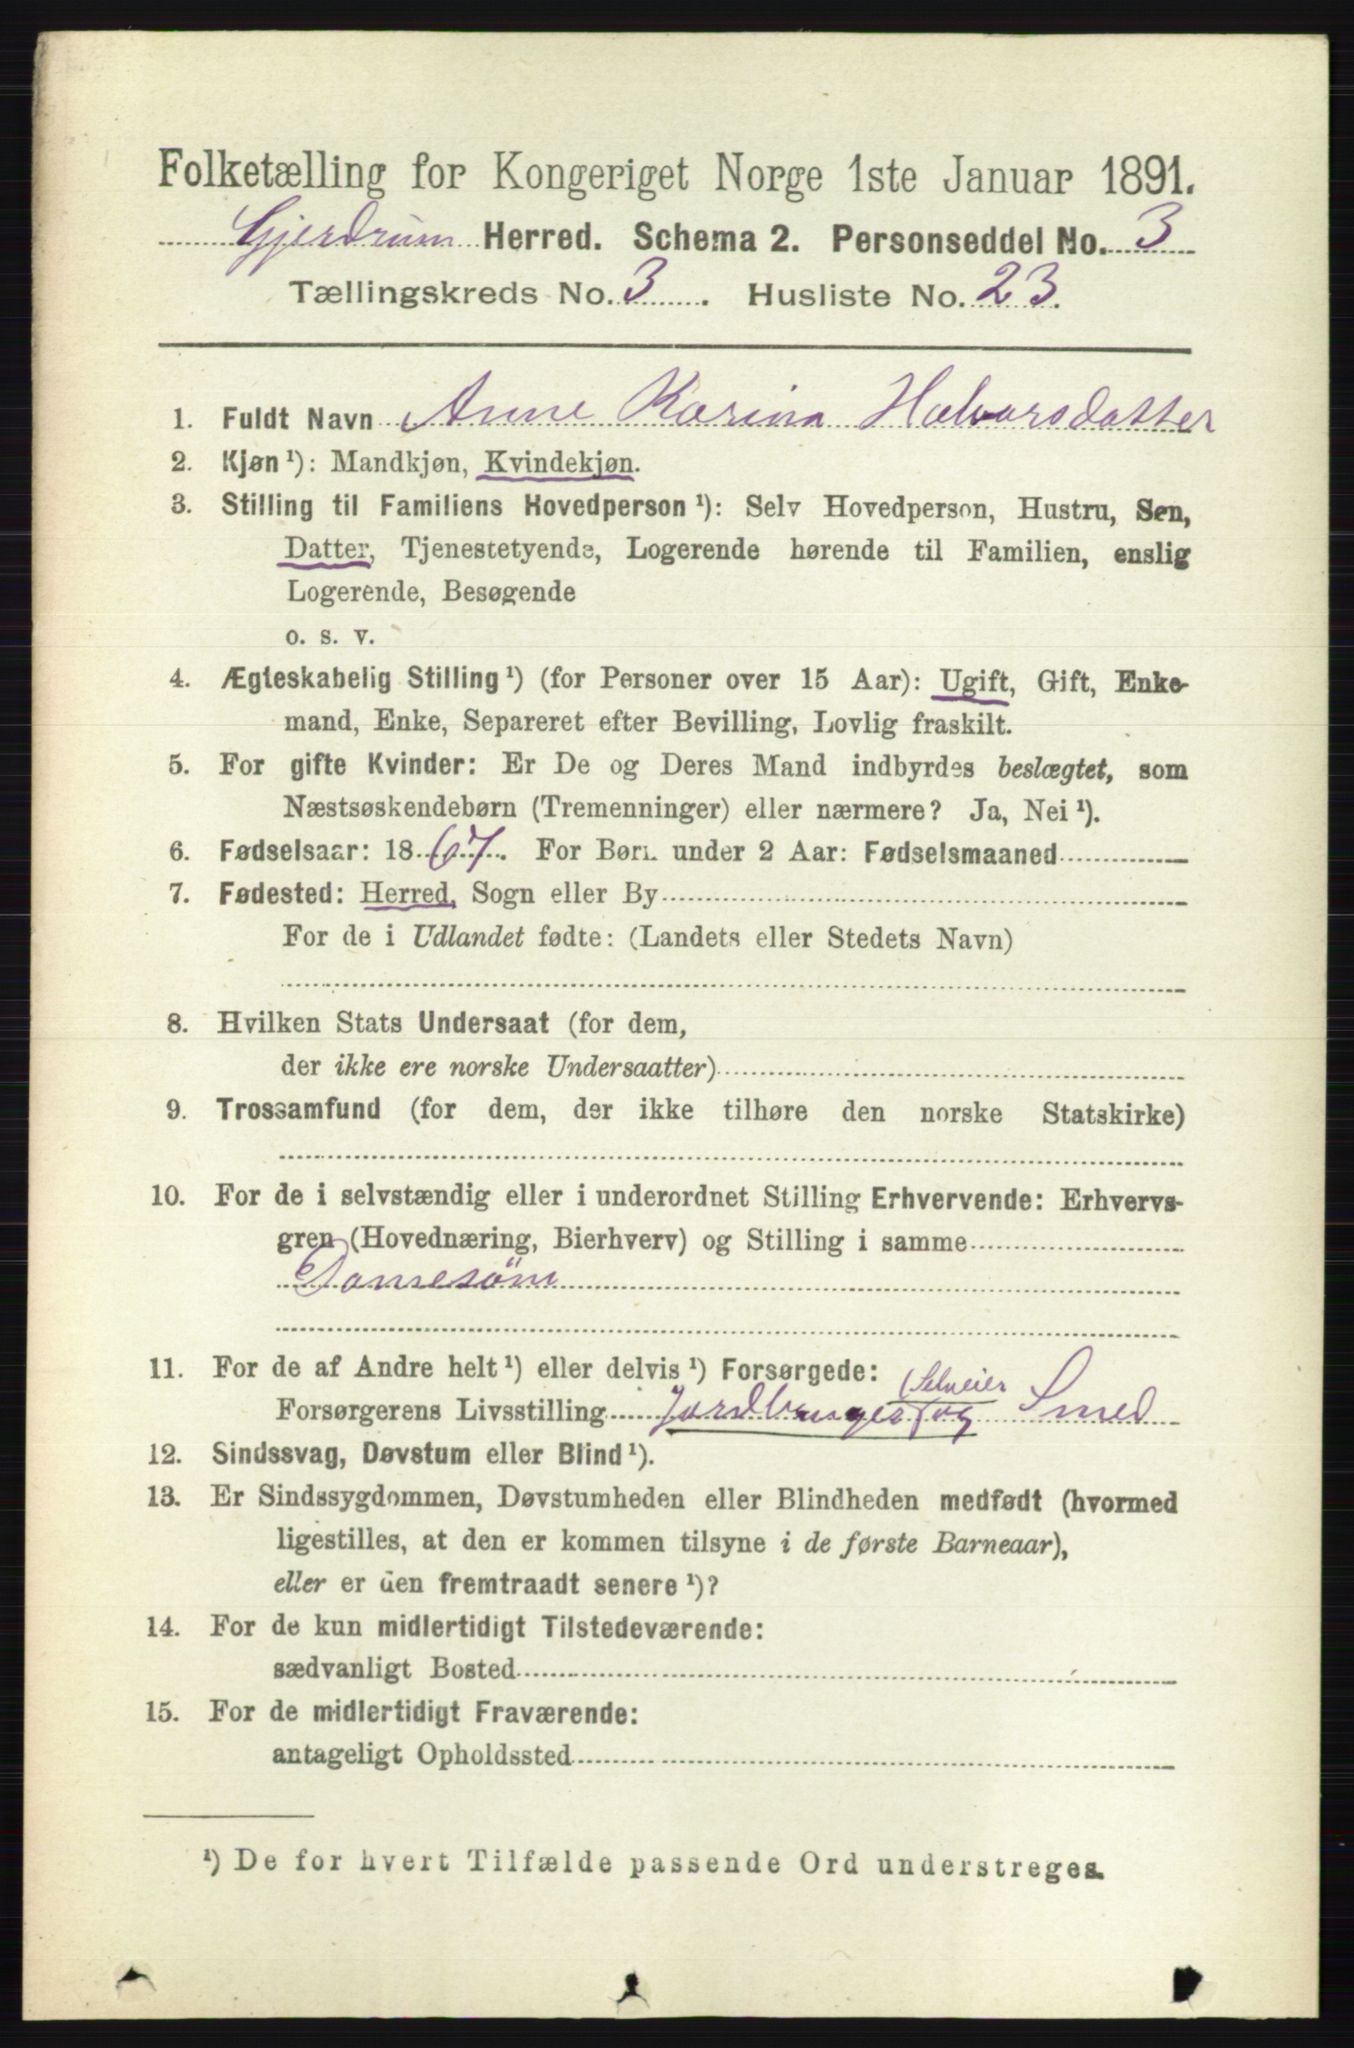 Folketælling for Kongeriget Norge 1ste Januar 1891.
Gjerdrum Herred. Schema 2. Personseddel No. 3
Tællingskreds No. 3. Husliste No. 23.
1. Fuldt Navn Anne Karina Halvorsdatter
2. Kjøn ¹): Mandkjøn, Kvindekjøn.
3. Stilling til Familiens Hovedperson ¹): Selv Hovedperson, Hustru, Søn,
Datter, Tjenestetyende, Logerende hørende til Familien, enslig
Logerende, Besøgende
o. s. v.
4. Ægteskabelig Stilling ¹) (for Personer over 15 Aar): Ugift, Gift, Enke-
mand, Enke, Separeret efter Bevilling, Lovlig fraskilt.
5. For gifte Kvinder: Er De og Deres Mand indbyrdes beslægtet, som
Næstsøskendebørn (Tremenninger) eller nærmere? Ja, Nei ¹).
6. Fødselsaar: 1867. For Børn under 2 Aar: Fødselsmaaned
7. Fødested: Herred, Sogn eller By
For de i Udlandet fødte: (Landets eller Stedets Navn)
8. Hvilken Stats Undersaat (for dem,
der ikke ere norske Undersaatter)
9. Trossamfund (for dem, der ikke tilhøre den norske Statskirke)
10. For de i selvstændig eller i underordnet Stilling Erhvervende: Erhvervs-
gren (Hovednæring, Bierhverv) og Stilling i samme
Damesöm
11. For de af Andre helt ¹) eller delvis ¹) Forsørgede:
Forsørgerens Livsstilling Jordbruger (Selveier og Smed
12. Sindssvag, Døvstum eller Blind ¹).
13. Er Sindssygdommen, Døvstumheden eller Blindheden medfødt (hvormed
ligestilles, at den er kommen tilsyne i de første Barneaar),
eller er den fremtraadt senere ¹)?
14. For de kun midlertidigt Tilstedeværende:
sædvanligt Bosted
15. For de midlertidigt Fraværende:
antageligt Opholdssted
¹) De for hvert Tilfælde passende Ord understreges.